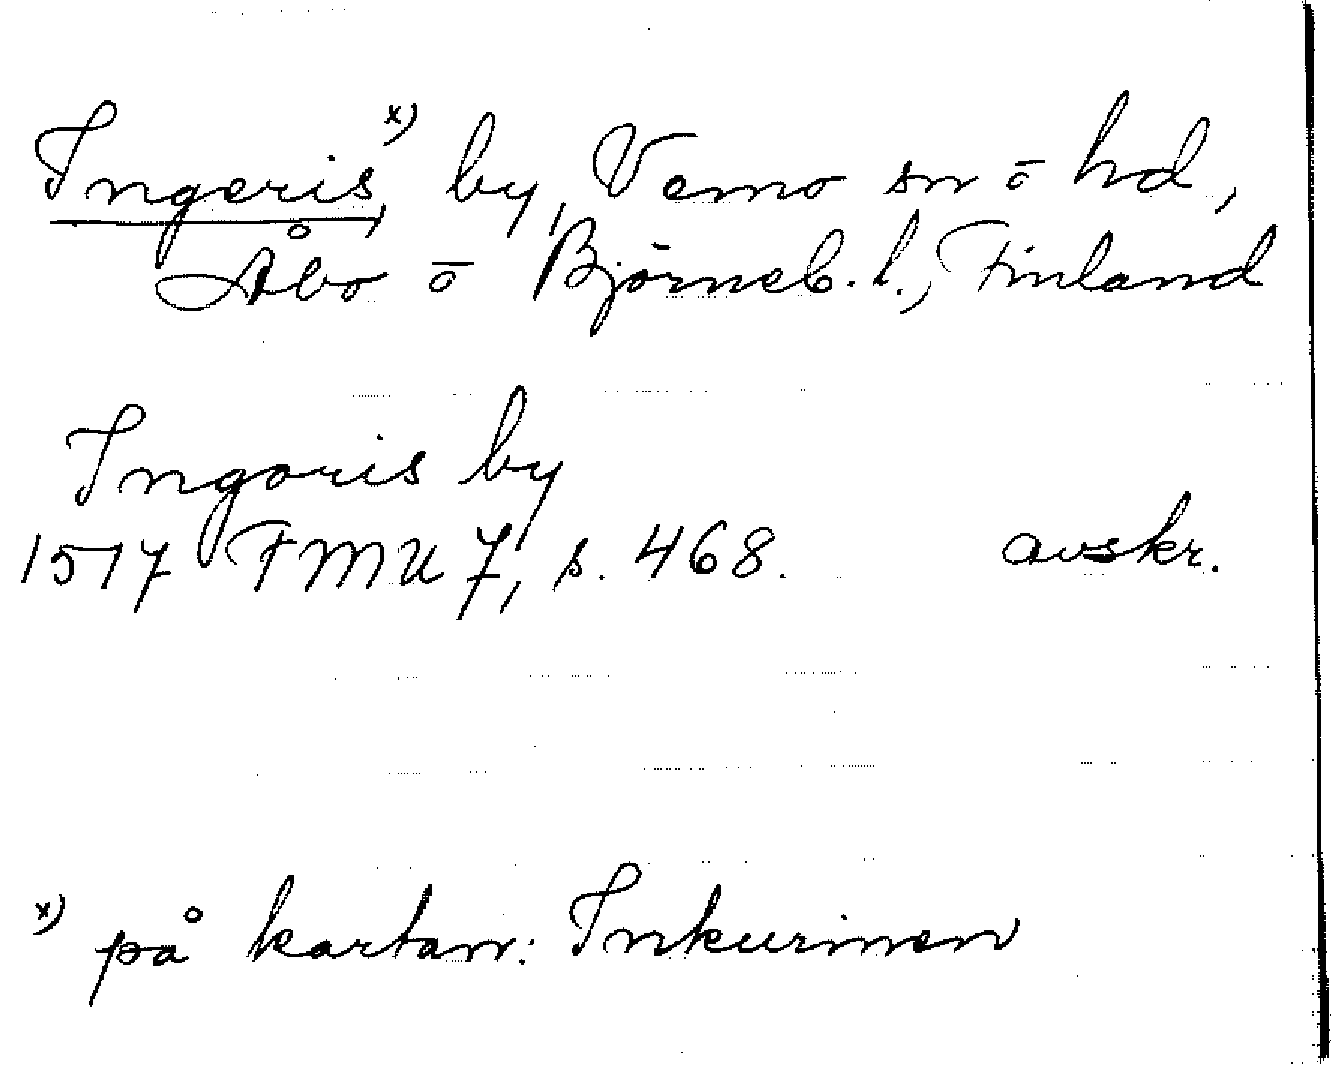 Ingeris x), by, Vemo sn o hd,
Åbo o Björneb. l., Finland
Ingoris by
1517 FMU 7, s. 468. avskr.
x) på kartan: Inkurinen